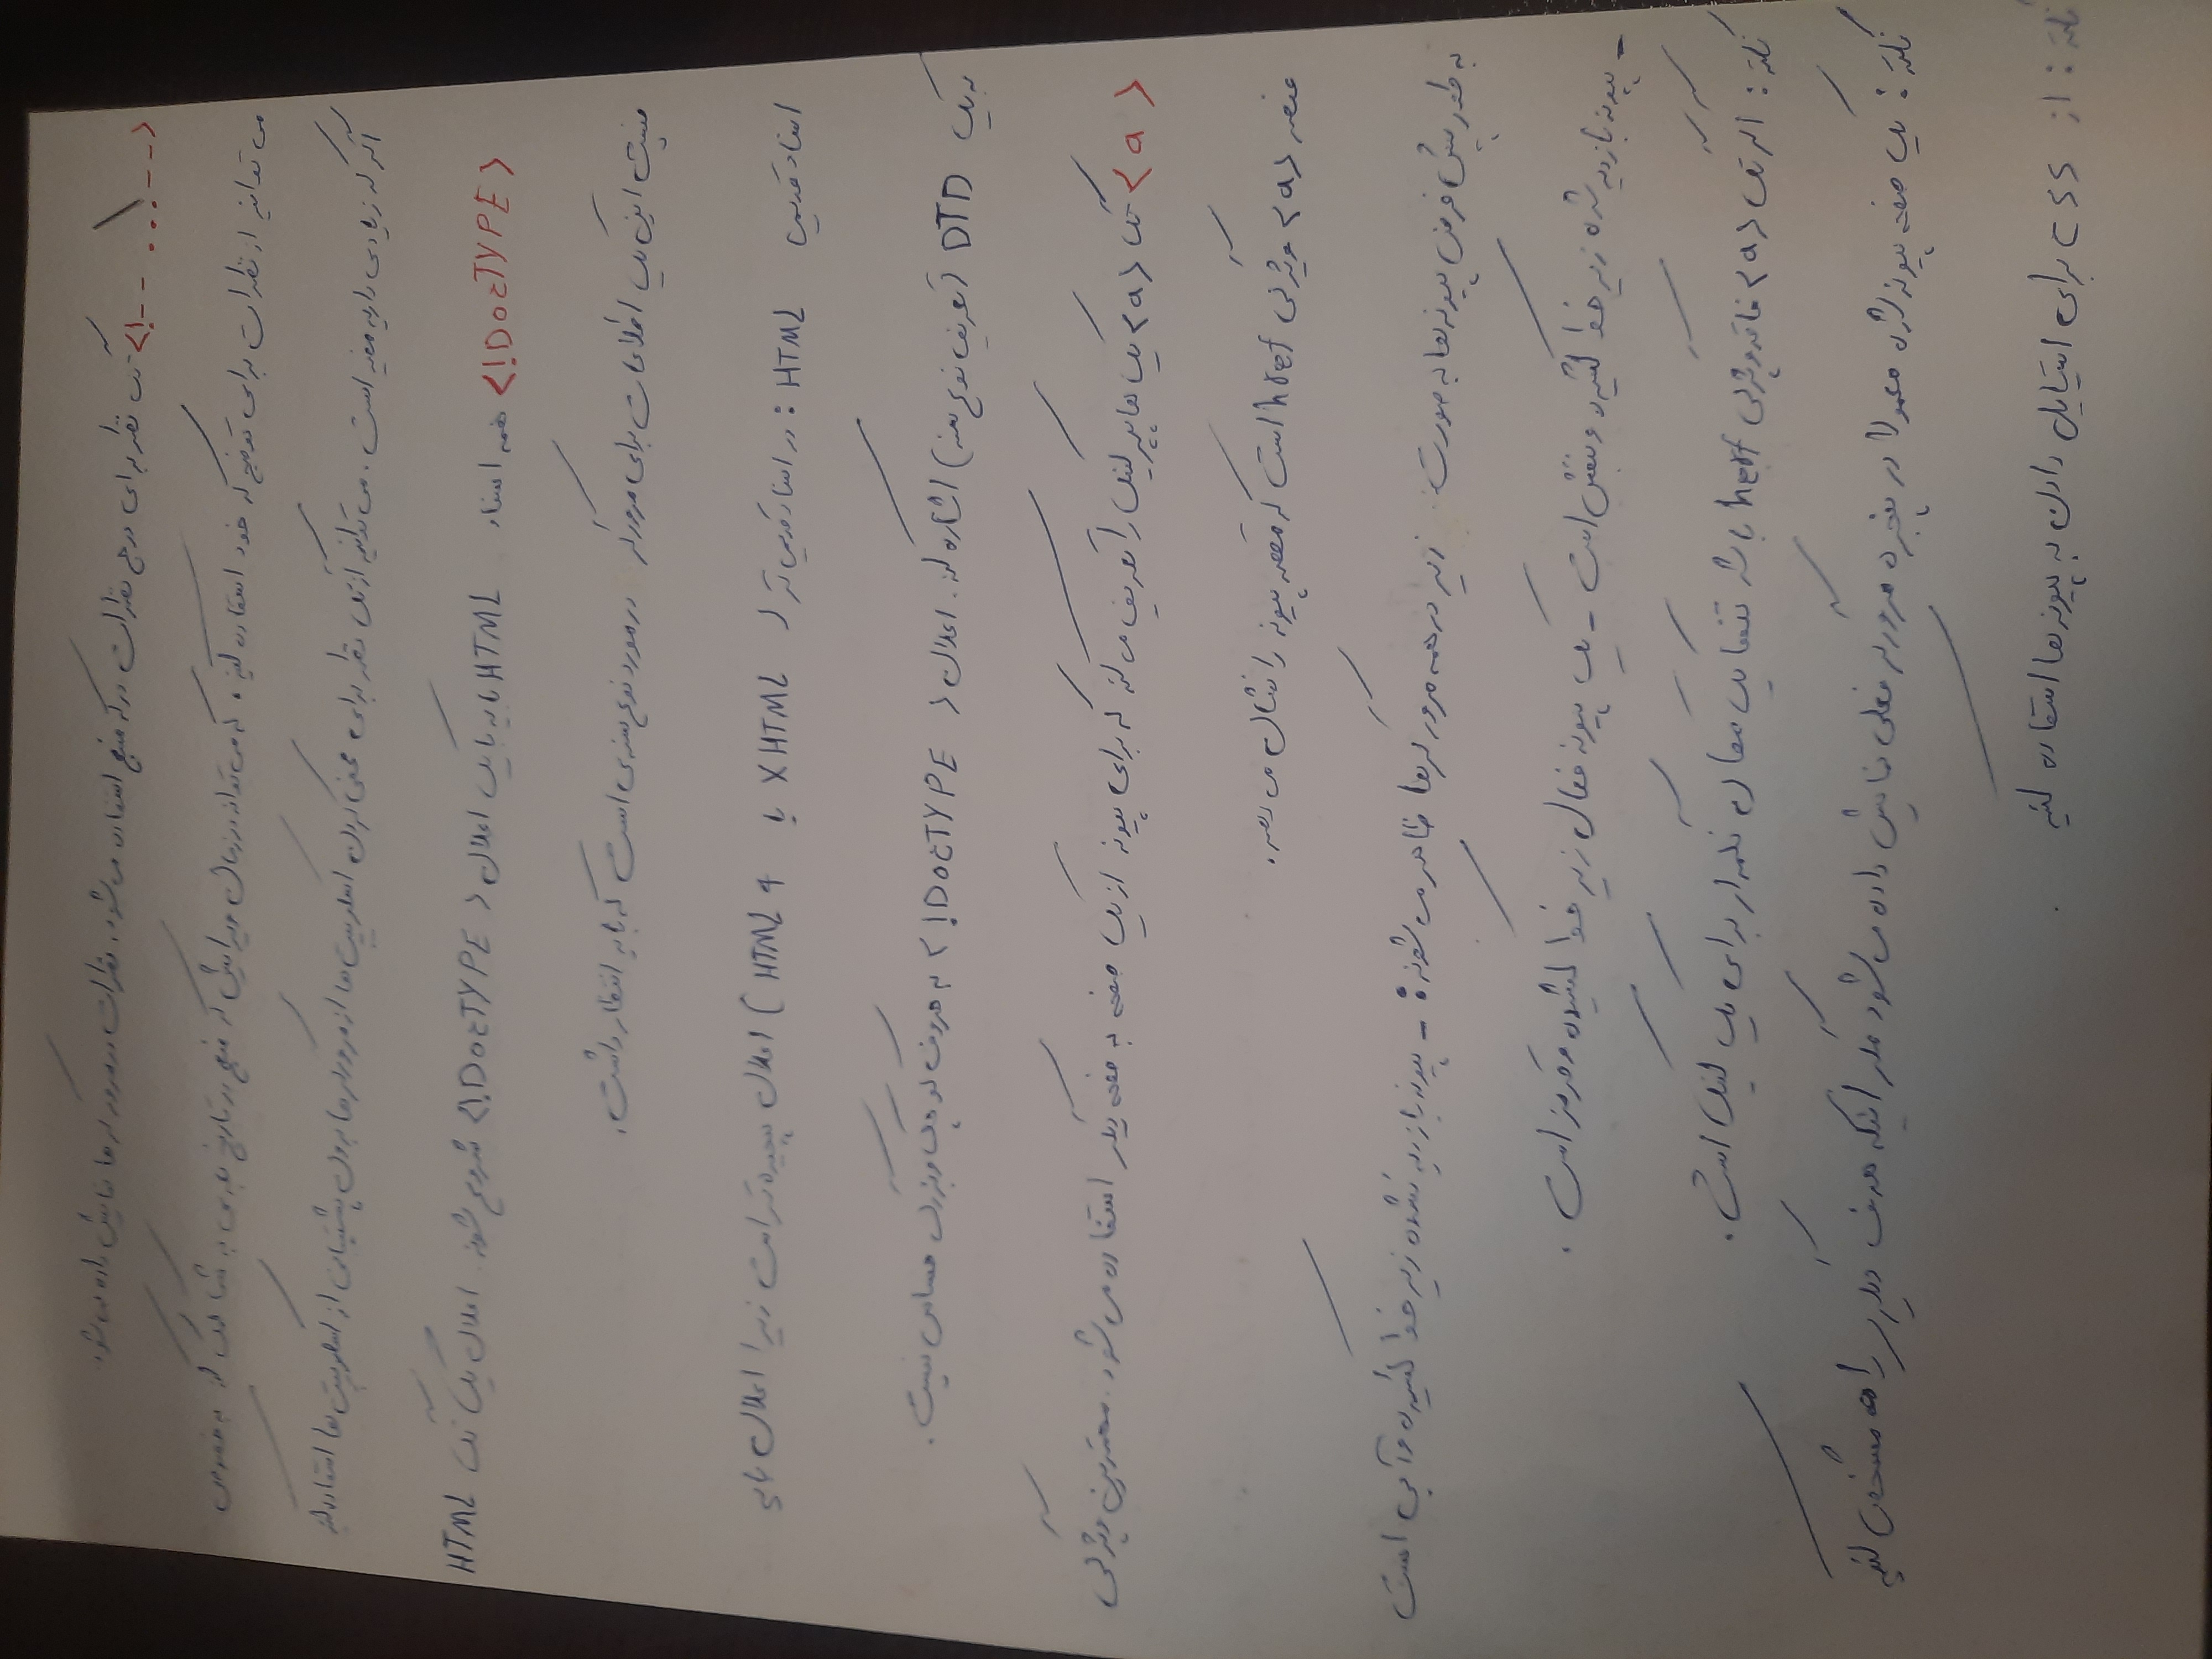 <!--...--> تگ نظر برای درج نظرات در کد منبع استفاده می شود. نظرات در مرورگرها نمایش داده نمی شود.
می توانید از نظرات برای توضیح کد خود استفاده کنید، که می تواند در زمان ویرایش کد منبع در تاریخ بعدی به شما کمک کند به خصوص
اگر کد زیادی دارید مفید است. می توانید از تگ نظر برای مخفی کردن اسکریپت ها از مرورگرها بدون پشتیبانی از اسکریپت ها استفاده کنید
<!DOCTYPE> همه اسناد HTML باید با یک اعلان <!DOCTYPE> شروع شوند. اعلان یک تگ HTML
نیست این یک اطلاعات برای مرورگر در مورد نوع سندی است که باید انتظار داشت.
اسناد قدیمی HTML: در اسناد قدیمی تر (XHTML یا HTML 4) اعلان پیچیده تر است زیرا اعلان باید
به یک DTD (تعریف نوع سند) اشاره کند. اعلان <!DOCTYPE> به حروف کوچک و بزرگ حساس نیست.
<a> تگ <a> یک هایپرلینک را تعریف می کند که برای پیوند از یک صفحه به صفحه دیگر استفاده می شود. مهمترین ویژگی
عنصر <a> ویژگی href است که مقصد پیوند را نشان می دهد.
به طور پیش فرض پیوندها به صورت زیر در همه مرورگرها ظاهر می شوند: - پیوند بازدید نشده زیر خط کشیده و آبی است
- پیوند بازدید شده زیر خط کشیده و بنفش است - یک پیوند فعال زیر خط کشیده و قرمز است.
نکته: اگر تگ <a> فاقد ویژگی href باشد تنها یک مکان نگهدار برای یک لینک است.
نکته: یک صفحه پیوند شده معمولا در پنجره مرورگر فعلی نمایش داده می شود مگر اینکه هدف دیگری را مشخص کنید
نکته: از css برای استایل دادن به پیوندها استفاده کنید